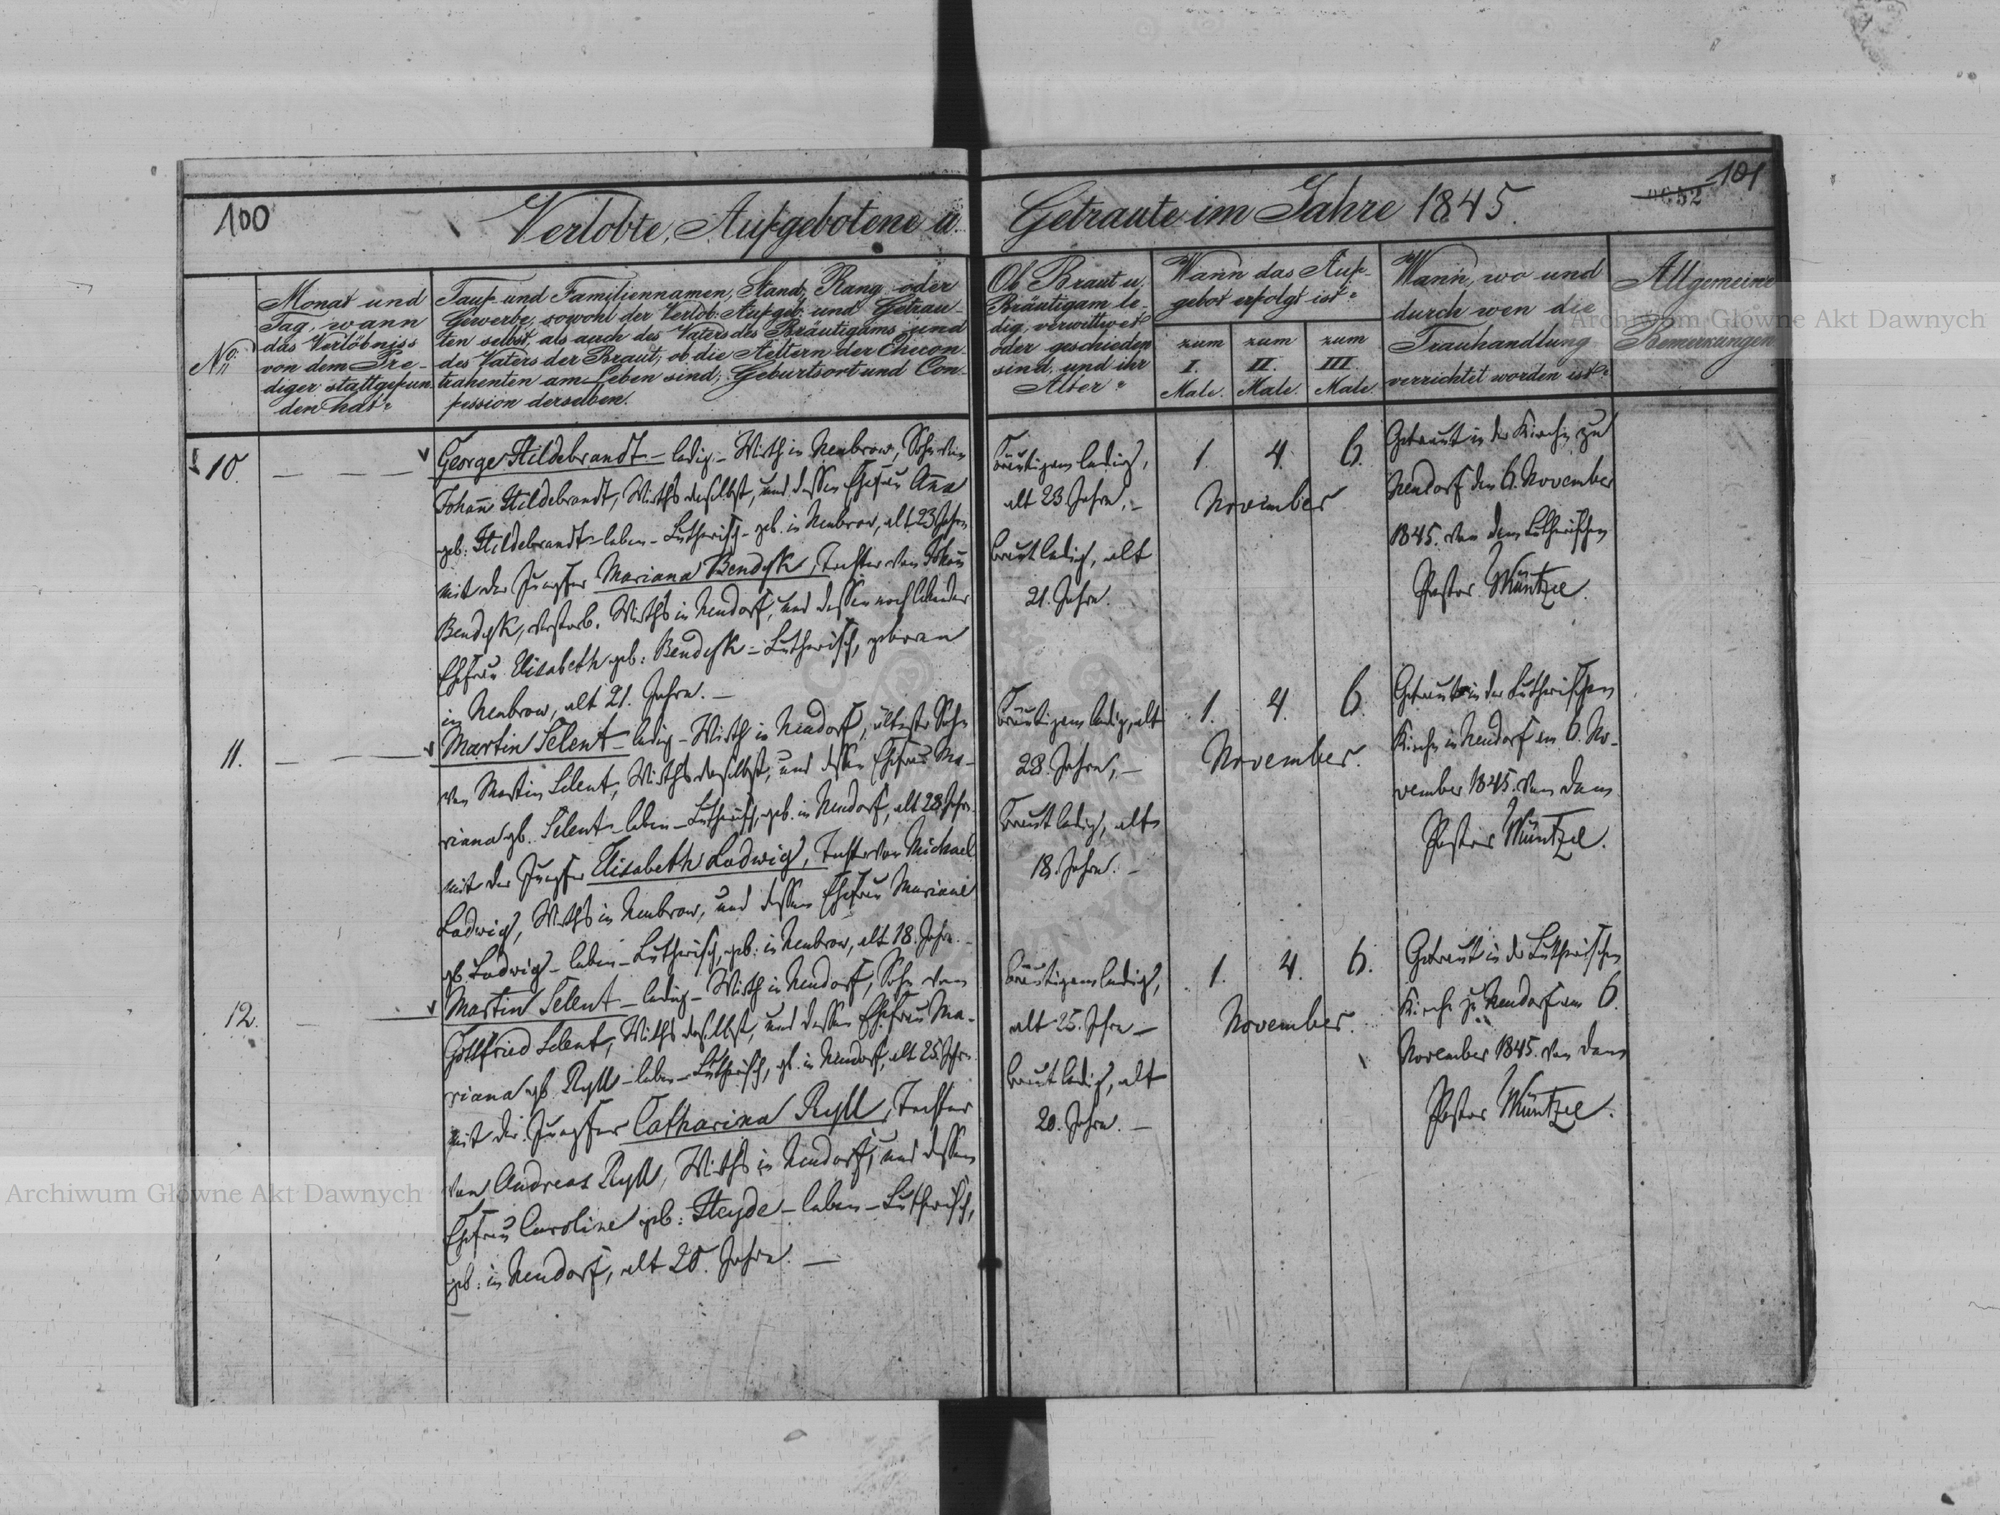 100
Verlobte, Aufgebotene u. Getraute im Jahre 1845.
101
52
No.
Monat und
Tag, wann
das Verlöbniss
von dem Pre-
diger stattgefun-
den hat?
Tauf- und Familiennamen, Stand, Rang oder
Gewerbe, sowohl der Verlob: Aufgeb: und Getrau-
ten selbst, als auch des Vaters des Bräutigams und
des Vaters der Braut; ob die Aeltern der Ehecon-
trahenten am Leben sind; Geburtsort und Con-
fession derselben.
Ob Braut u.
Bräutigam le-
dig, verwittwet
oder geschieden
sind, und ihr
Alter?
Wann das Auf-
gebot erfolgt ist?
zum
I.
Male.
zum
II.
Male.
zum
III.
Male.
Wann, wo und
durch wen die
Trauhandlung
verrichtet worden ist?
Allgemeine
Bemerkungen
10.
George Hildebrandt – ledig – Wirth in Neubrow, Sohn von
Johann Hildebrandt, Wirths daselbst, und dessen Ehefrau Anna
geb: Hildebrandt – leben – Lutherisch – geb. in Neubrow, alt 23 Jahre
mit der Jungfer Mariana Bendysk, Tochter von Johann
Bendysk, verstorb. Wirths in Neudorf, und dessen noch lebender
Ehefrau Elisabeth geb: Bendysk – Lutherisch, geboren
in Neubrow, alt 21. Jahre. –
Bräutigam ledig,
alt 23 Jahre, –
Braut ledig, alt
21. Jahre.
1. 4. 6.
November
Getraut in der Kirche zu
Neudorf den 6. November
1845. von dem Lutherischen
Pastor Müntzel.
11.
Martin Selent – ledig – Wirth in Neudorf, ältester Sohn
von Martin Selent, Wirths daselbst, und dessen Ehefrau Ma-
riana geb. Selent – leben – Lutherisch, geb. in Neudorf, alt 28 Jahre.
mit der Jungfer Elisabeth Ladwig, Tochter von Michael
Ladwig, Wirths in Neubrow, und dessen Ehefrau Mariane
geb. Ladwig – leben – Lutherisch, geb. in Neubrow, alt 18. Jahre. –
Bräutigam ledig, alt
28. Jahre, –
Braut ledig, alt
18. Jahre. –
1. 4. 6.
November.
Getraut in der Lutherischen
Kirche in Neudorf am 6. No-
vember 1845. von dem
Pastor Müntzel.
12.
Martin Selent – ledig – Wirth in Neudorf, Sohn von
Gottfried Selent, Wirths daselbst, und dessen Ehefrau Ma-
riana geb. Ryll – leben – Lutherisch, geb. in Neudorf, alt 25. Jahre
mit der Jungfer Catharina Ryll, Tochter
von Andreas Ryll, Wirths in Neudorf, und dessen
Ehefrau Caroline geb: Heyde – leben – Lutherisch,
geb: in Neudorf, alt 20. Jahre. –
Bräutigam ledig,
alt 25. Jahre –
Braut ledig, alt
20. Jahre. –
1. 4. 6.
November.
Getraut in der Lutherischen
Kirche zu Neudorf am 6.
November 1845. von dem
Pastor Müntzel.
Archiwum Główne Akt Dawnych
Archiwum Główne Akt Dawnych